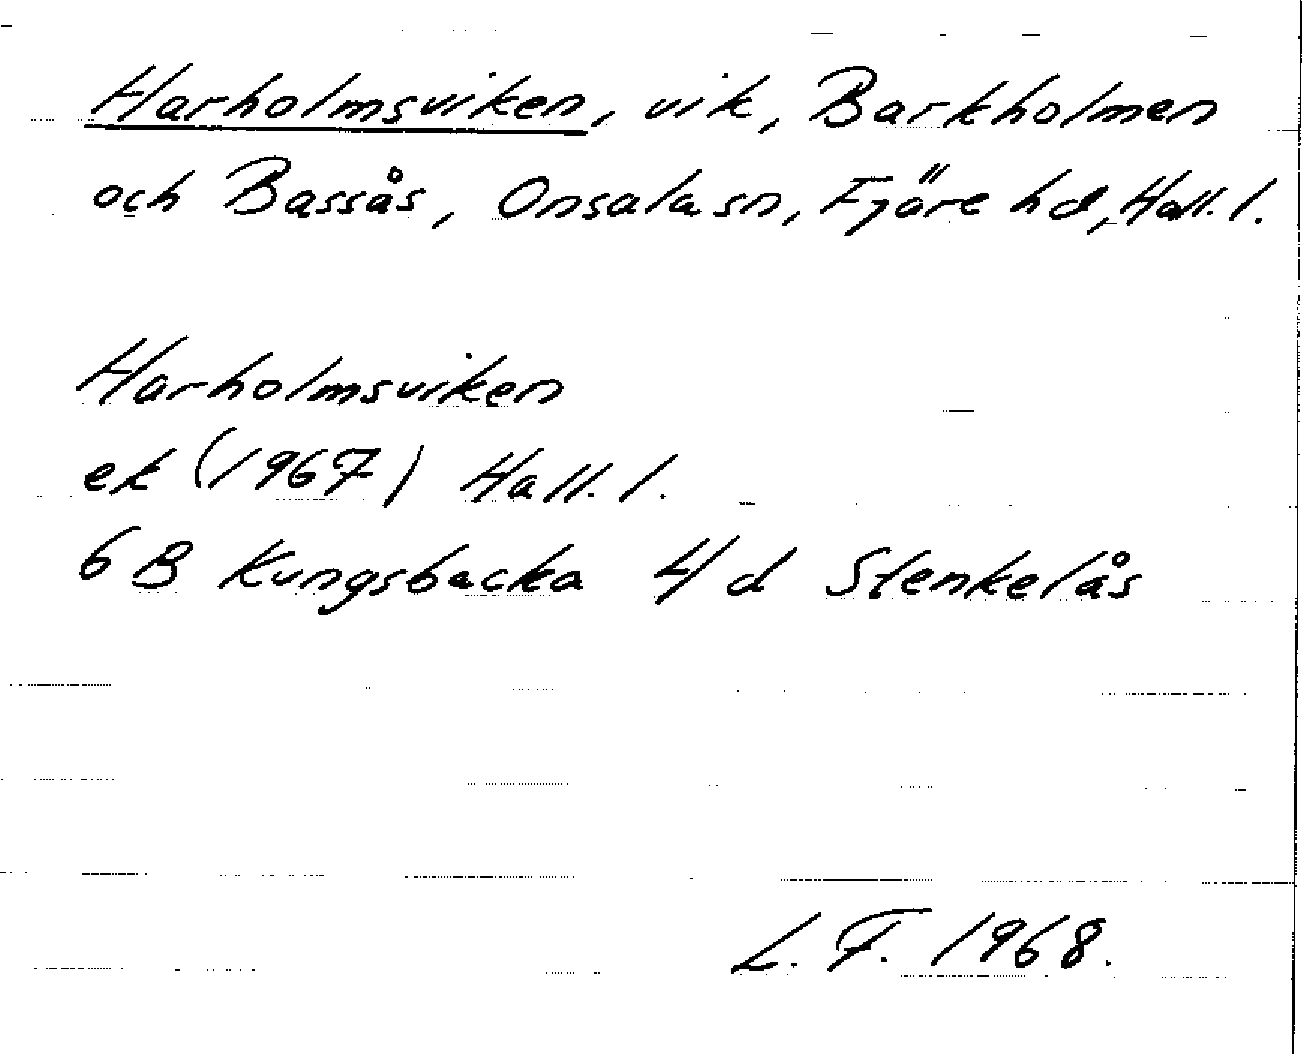 Harholmsviken, vik, Barkholmen
och Bassås, Onsala sn, Fjäre hd, Hall. l.
Harholmsviken
ek (1967) Hall. l.
6 B Kungsbacka 4 d Stenkelås
L. F. 1968.